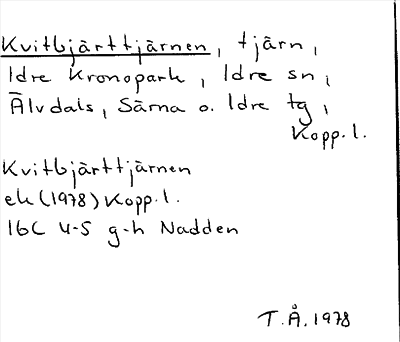 Kvitbjärttjärnen, tjärn,
Idre Kronopark, Idre sn,
Älvdals, Särna o. Idre tg,
Kopp.l.
Kvitbjärttjärnen
ek (1978) Kopp.l.
16C 4-5 g-h Nadden
T.Å. 1978